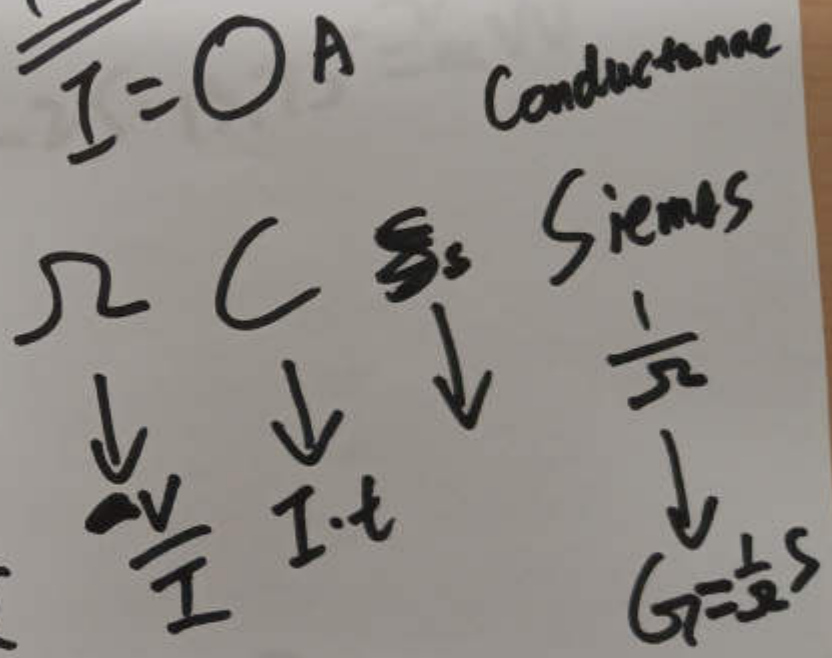 I = 0 A
Conductanne
Ω C s Siemes
1/Ω
V/I I·t
G = 1/Ω S